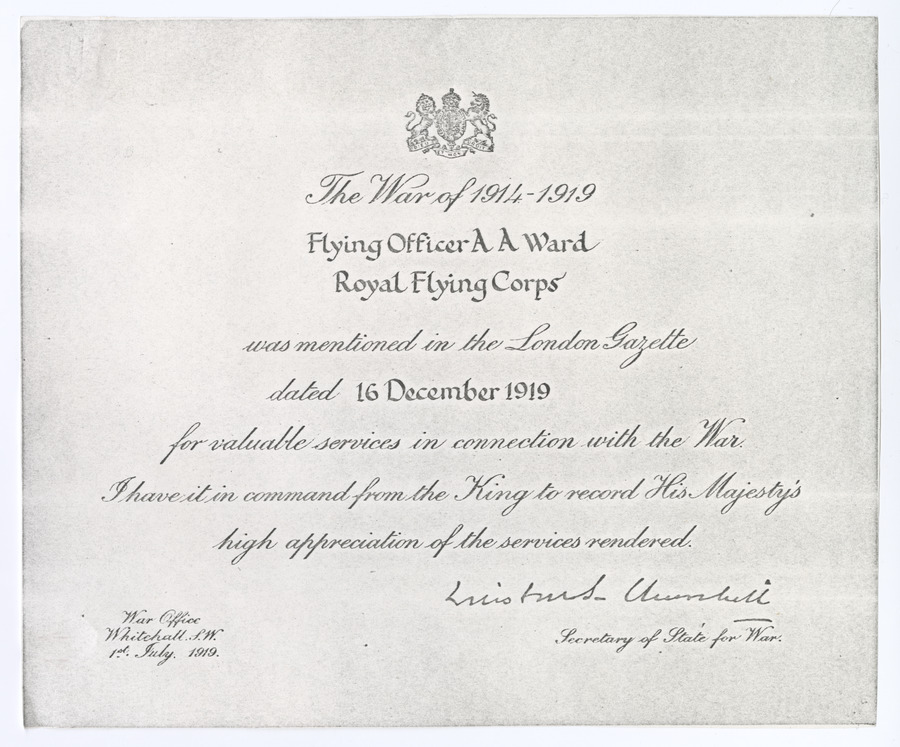 The War of 1914-1919
Flying Officer A A Ward
Royal Flying Corps
was mentioned in the London Gazette
dated 16 December 1919
for valuable services in connection with the War.
I have it in command from the King to record His Majesty's
high appreciation of the services rendered.
Winston S Churchill
War Office
Whitehall. S.W.
Secretary of State for War.
1st. July. 1919.